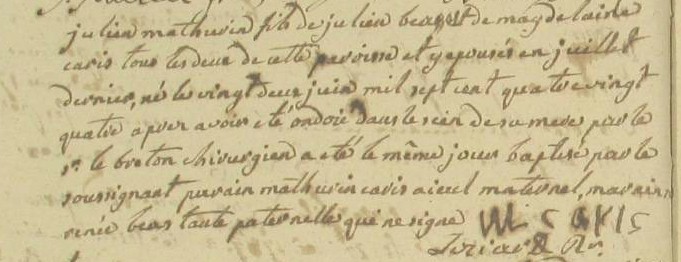 julien mathurin fils de julien beart de magdelaine
caris tous les deux de cette paroisse et y epousés en juillet
dernier, né le vingt deux juin mil sept cent quatre vingt
quatre apres avoir eté ondoié dans le sein de sa mere par le
sr. le breton chirurgien a eté le même jour baptisé par le
soussignant parain mathurin caris aieul maternel, maraine
renée bears tante paternelle qui ne signe M CARIS
Rr.